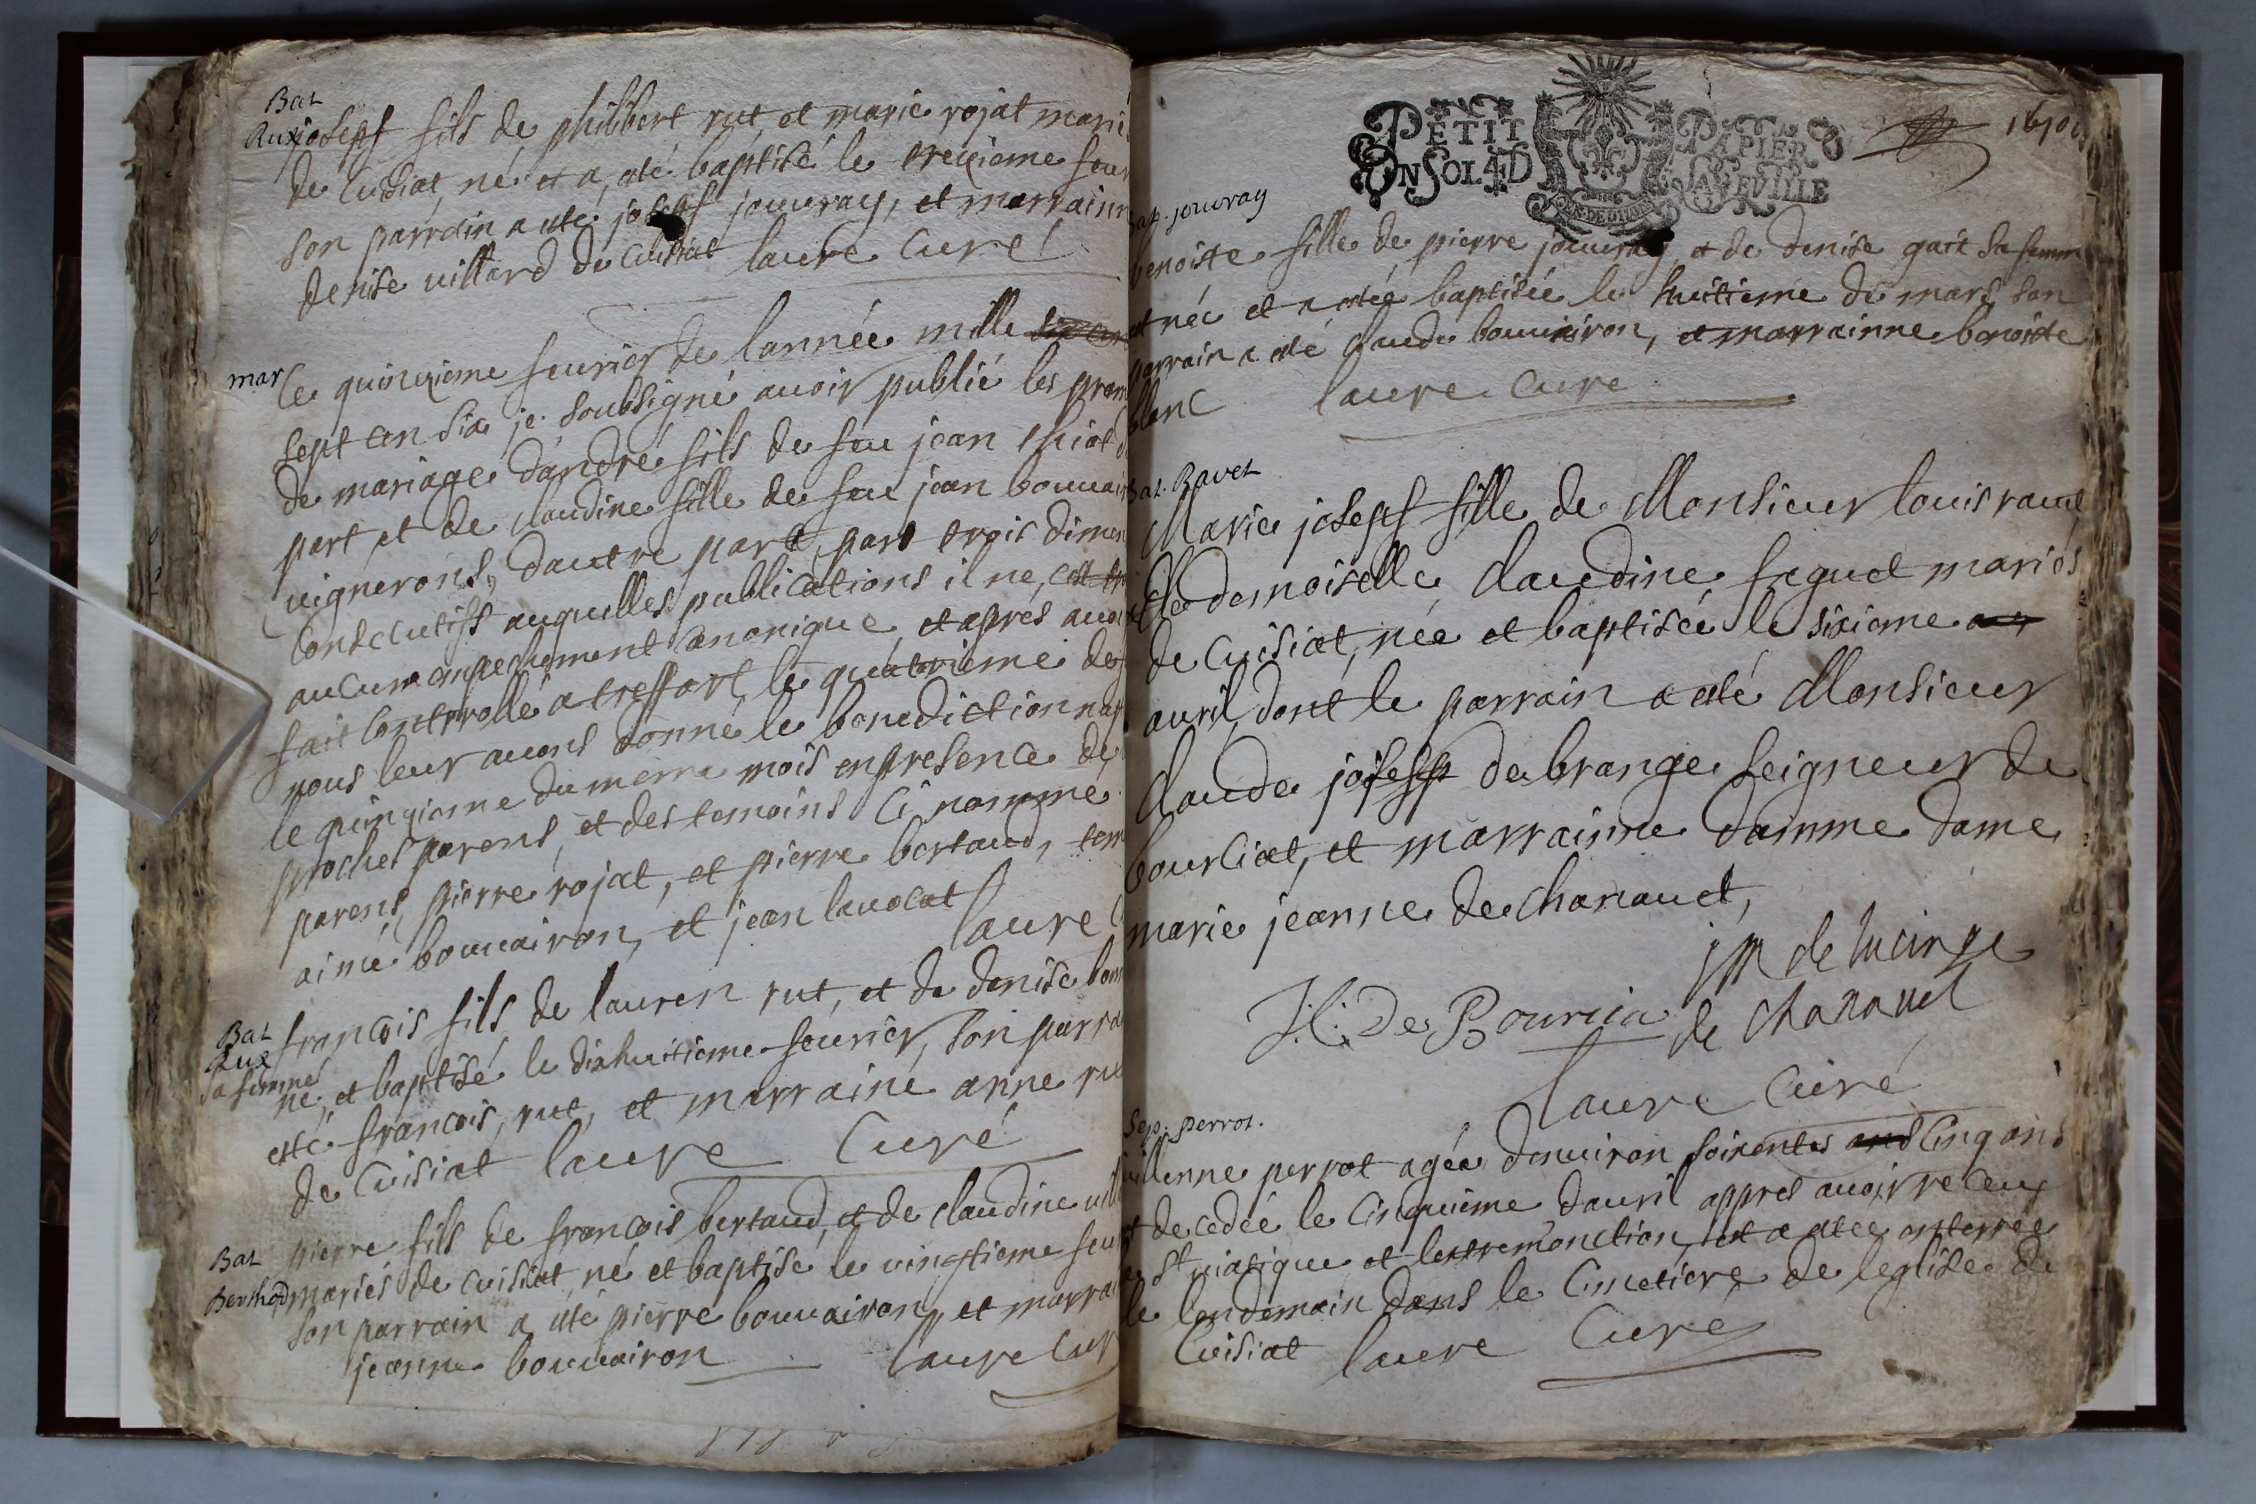 Bat
Aux joseph fils de philibert rut, et marie rojat marié
de Cuisiat, né et a, eté baptisé le treizieme feur
son parrain a eté joseph jouuray, et marrainn
denise uillard de Cuisiat laure Curé
mar Le quinzieme feurier de lannée mille six cen
sept cen six je soubsigné auoir publié les prom
de mariage dandré fils de feu jean thiot d
part et de claudine fille de feu jean bouuair
uignerons, dautre part, part trois dimen
Consecutifs auquelles publications il ne, cest tr
aucune empechement canonique, et aprés auoi
fait Controllé a treffort le quatorieme de
nous leur auons donné le benediction nup
le quinzieme du meme mois en presence de
proches parens, et des temoins Ci nommé
parens, pierre rojat, et pierre bertaud, tem
aimé bouuairon, et jean lauocat laure C
Bat francois fils de lauren rut, et de denise bou
Rut
sa femme
né, et baptisé le dixhuitieme feurier, son parra
esté francois, rut, et marraine anne rut
de Cuisiat laure Curé
Bat pierre fils de francois bertaud, et de claudine uill
Berthod mariés de Cuisiat, né et baptisé le uingtieme feu
son parrain a eté pierre bouuairon, et marrai
jeanne bouuairon laure Cur
PETIT PAPIER
UN SOL 4 D LA FEUILLE
GEN. DE DIJON
bat. jouvray
benoiste fille de pierre jouuray, et de denise gait sa femm
et née et a eteé baptisée le huitieme de mars son
parrain a eté claude bouuairon, et marrainne benoiste
blanc laure Curé
bat. Ravet
Marie joseph fille de Monsieur louis rauet
et de demoiselle claudine seguet mariés
de Cuisiat, née et baptisée le sixieme
auril, dont le parrain a eté Monsieur
claude joseph de brange seigneur de
bourciat, et marrainne damme dame
marie jeanne de Chanauet,
jm de lucinge
J. C. De Bourcia de Chanauet
laure Curé
Sep. perrot.
perrot agée denuiron soixentes ans Cinq ans
decedée le Cinquieme dauril appres auoir receu
le St uiatique et lextremonction, et a etee enterrée
le lendemain dans le Cimetiere de leglise de
Cuisiat laure Curé